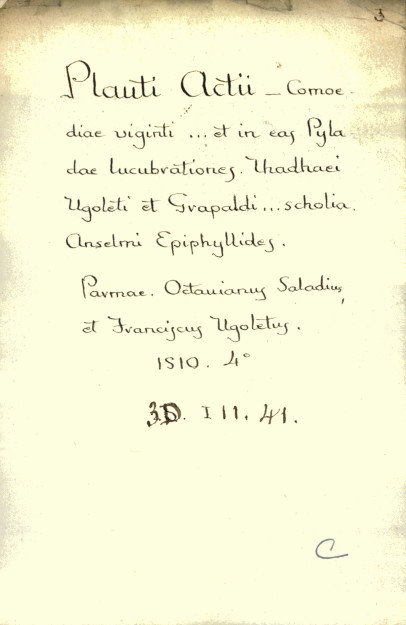 3
Plauti Actii — Comoe-
diae viginti ... et in eas Pyla
dae lucubrationes. Thadhaei
Ugoleti et Grapaldi ... scholia.
Anselmi Epiphyllides.
Parmae. Octavianus Saladius,
et Franciscus Ugoletus.
1510. 4°
3D. I 11. 41.
C